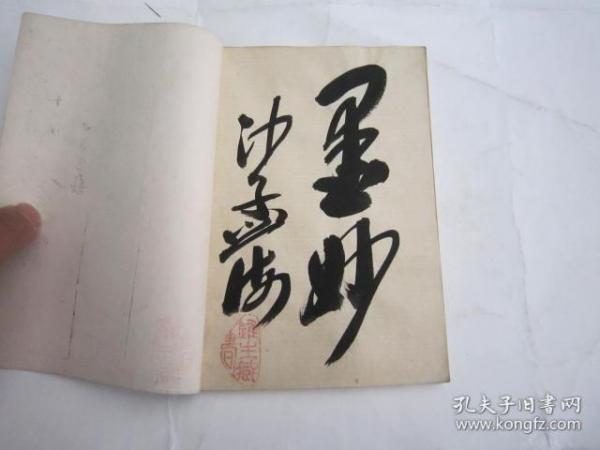 墨妙
沙孟海
孔夫子旧书网
www.kongfz.com